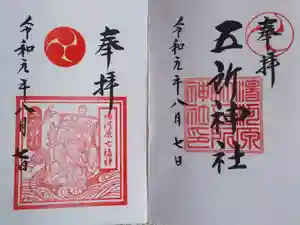 奉拝
令和元年八月七日
湯河原七福神
奉拝
五所神社
令和元年八月七日